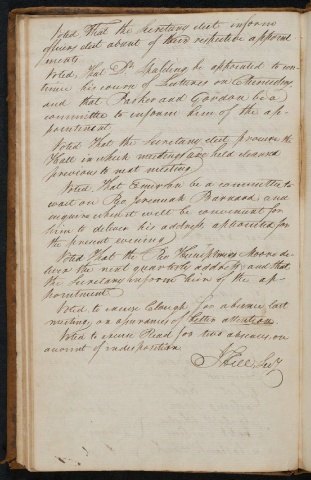 Voted That the Secretary elect inform
officers elect absent of their respective appoint
ments.
Voted, That Dr. Spalding be appointed to con-
tinue his course of Lectures on Chemistry
and that Parker and Gordon be a
committee to inform him of the ap-
pointment.
Voted That the Secretary elect procure the
Hall in which meetings are held cleaned
previous to next meeting
Voted, That Emerson be a committee to
wait on Rev. Jeremiah Barnard and
enquire when it will be convenient for
him to deliver his address, appointed for
the present evening.
Voted That the Rev. Humphrey Moore de-
liver the next quarterly address, and that
the Secretary inform him of the ap-
pointment.
Voted to excuse Clough for absence last
meeting, on assurances of better attention.
Voted to excuse Read for two absences, on
account of indisposition.
Hill, Secy.